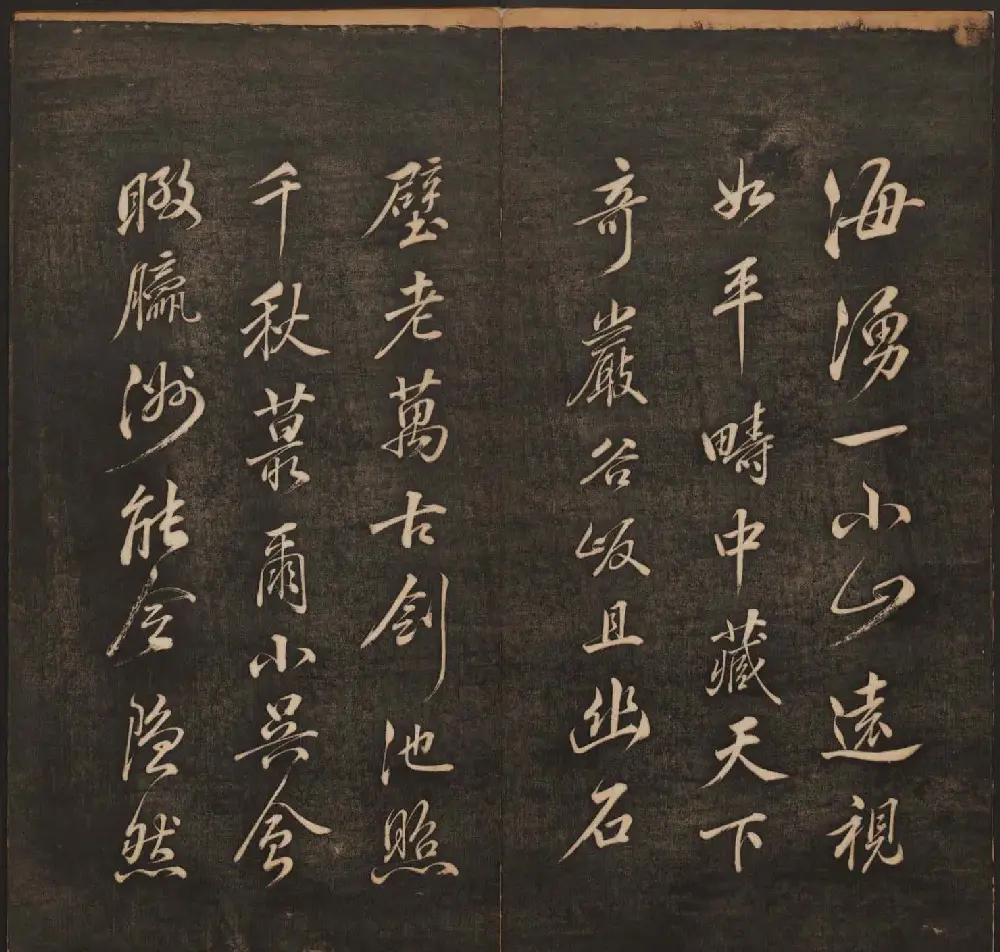 海湧一小山遠視
如平疇中藏天下
奇巖谷峻且幽石
壁老萬古劍池照
千秋蕞爾小吳會
瞰贏洲能令隱然